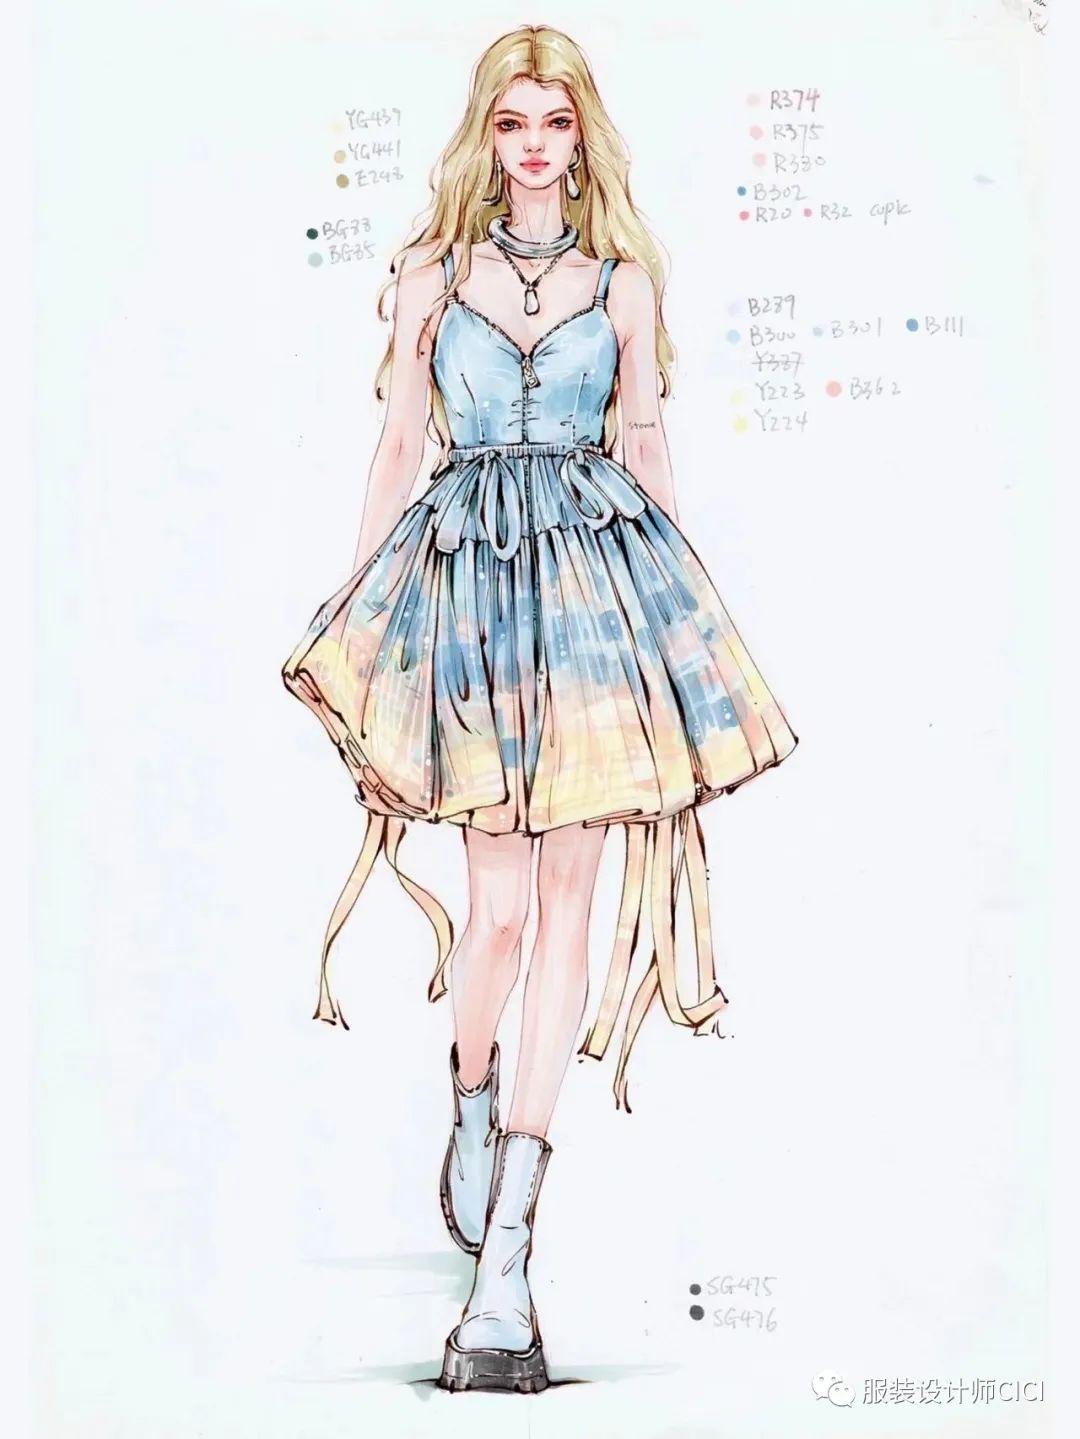 YG437
YG441
E248
BG88
BG85
R374
R375
R380
B302
R20 R32 copic
B289
B300 B301 B111
Y387
Y223 B362
Y224
stone
SG475
SG476
服装设计师CICI